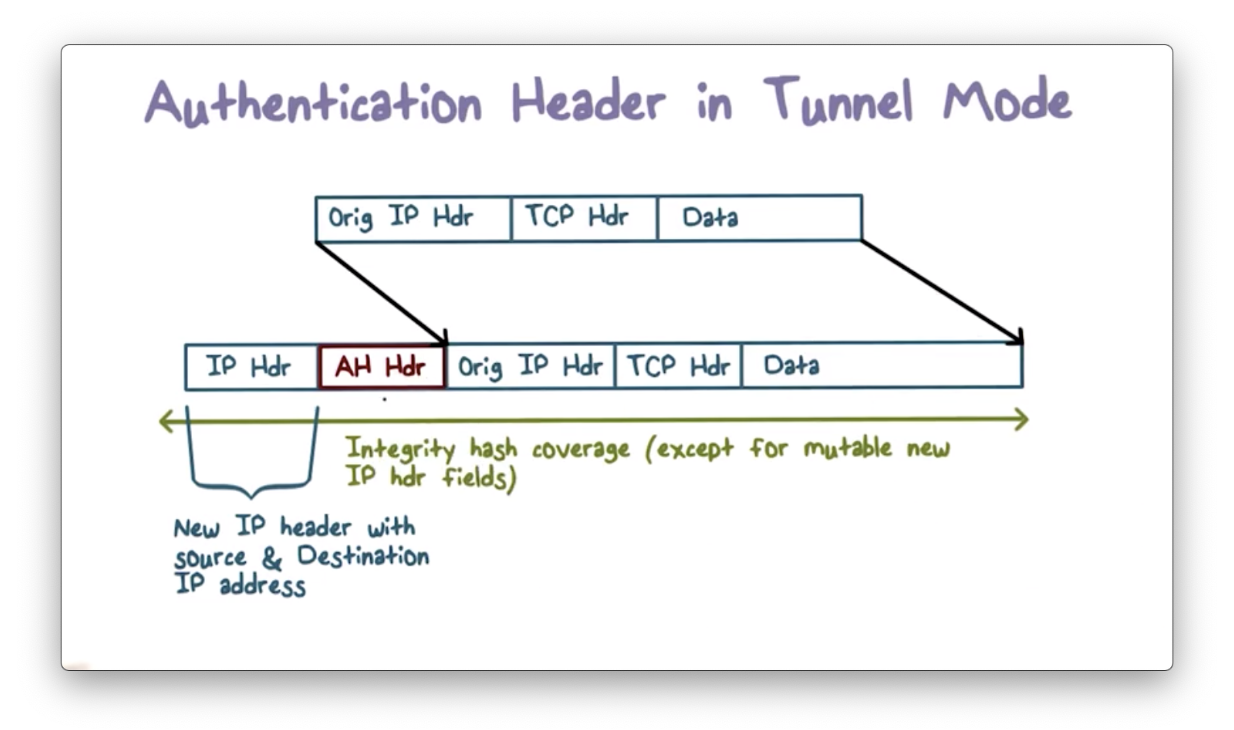 Authentication Header in Tunnel Mode
Orig IP Hdr TCP Hdr Data
IP Hdr AH Hdr Orig IP Hdr TCP Hdr Data
Integrity hash coverage (except for mutable new
IP hdr fields)
New IP header with
source & Destination
IP address